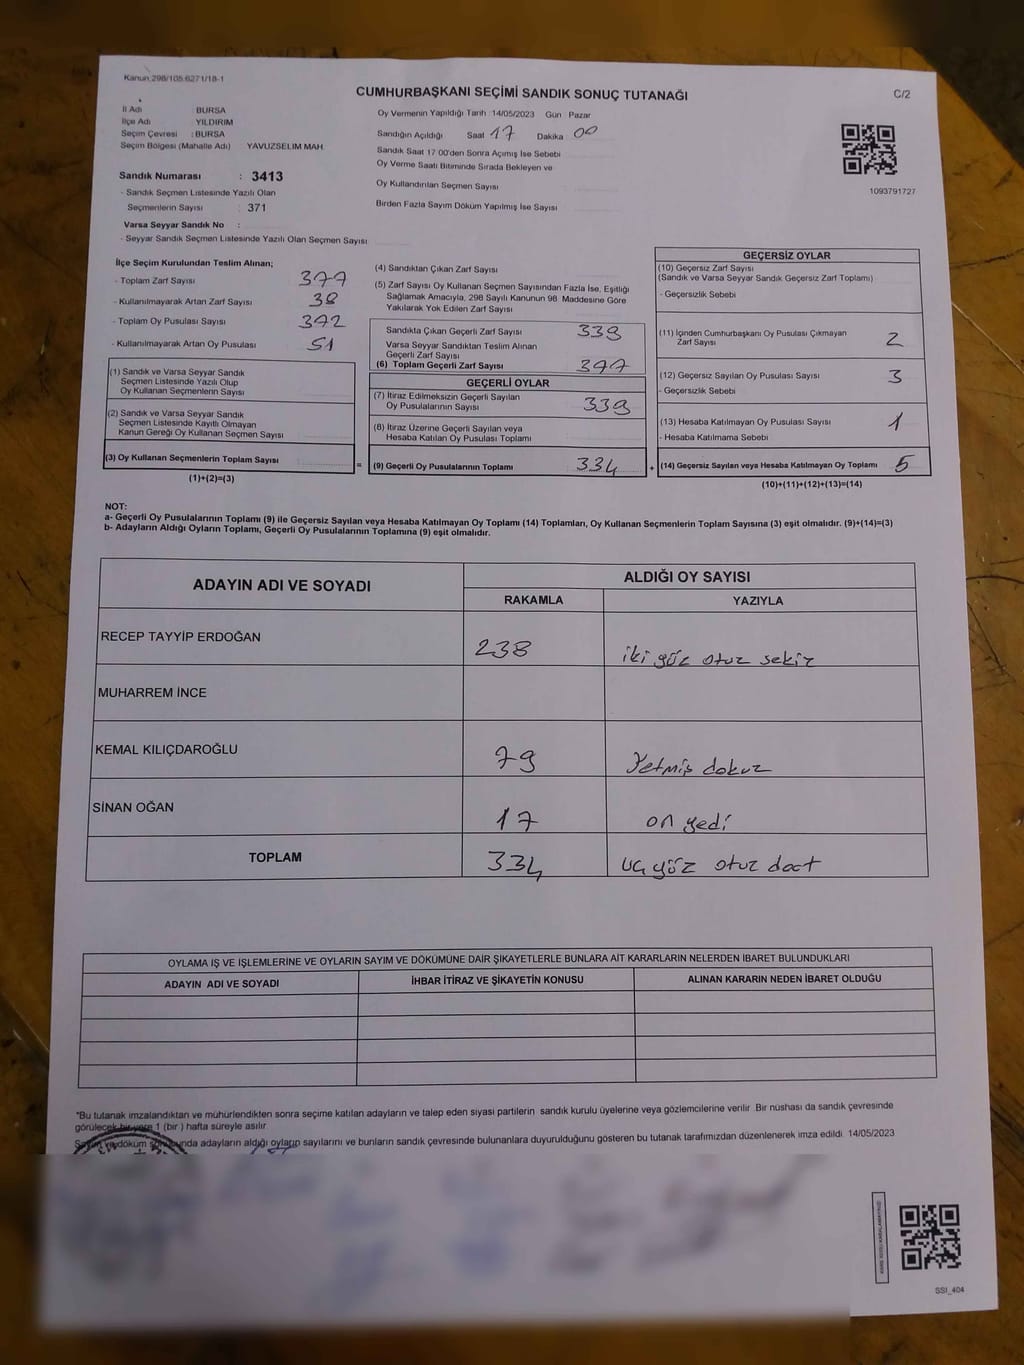 Kanun 298/105.6271/18-1
CUMHURBAŞKANI SEÇİMİ SANDIK SONUÇ TUTANAĞI
C/2
İl Adı : BURSA
İlçe Adı : YILDIRIM
Seçim Çevresi : BURSA
Seçim Bölgesi (Mahalle Adı) YAVUZSELIM MAH.
Oy Vermenin Yapıldığı Tarih :14/05/2023 Gün Pazar
Sandığın Açıldığı Saat 17 Dakika 00
Sandık Saat 17 00'den Sonra Açımış İse Sebebi
Oy Verme Saati Bitiminde Sırada Bekleyen ve
Oy Kullandırılan Seçmen Sayısı
Birden Fazla Sayım Döküm Yapılmış İse Sayısı
1093791727
Sandık Numarası : 3413
- Sandık Seçmen Listesinde Yazılı Olan
Seçmenlerin Sayısı : 371
Varsa Seyyar Sandık No :
- Seyyar Sandık Seçmen Listesinde Yazılı Olan Seçmen Sayısı
İlçe Seçim Kurulundan Teslim Alınan;
- Toplam Zarf Sayısı 377
- Kullanılmayarak Artan Zarf Sayısı 38
- Toplam Oy Pusulası Sayısı 392
- Kullanılmayarak Artan Oy Pusulası 51
(1) Sandık ve Varsa Seyyar Sandık
Seçmen Listesinde Yazılı Olup
Oy Kullanan Seçmenlerin Sayısı
(2) Sandık ve Varsa Seyyar Sandık
Seçmen Listesinde Kayıtlı Olmayan
Kanun Gereği Oy Kullanan Seçmen Sayısı
(3) Oy Kullanan Seçmenlerin Toplam Sayısı
(1)+(2)=(3)
=
(4) Sandıktan Çıkan Zarf Sayısı
(5) Zarf Sayısı Oy Kullanan Seçmen Sayısından Fazla İse, Eşitliği
Sağlamak Amacıyla, 298 Sayılı Kanunun 98. Maddesine Göre
Yakılarak Yok Edilen Zarf Sayısı
Sandıkta Çıkan Geçerli Zarf Sayısı 339
Varsa Seyyar Sandıktan Teslim Alınan
Geçerli Zarf Sayısı
(6) Toplam Geçerli Zarf Sayısı 377
GEÇERLİ OYLAR
(7) İtiraz Edilmeksizin Geçerli Sayılan
Oy Pusulalarının Sayısı 339
(8) İtiraz Üzerine Geçerli Sayılan veya
Hesaba Katılan Oy Pusulası Toplamı
(9) Geçerli Oy Pusulalarının Toplamı 334
+
GEÇERSİZ OYLAR
(10) Geçersiz Zarf Sayısı
(Sandık ve Varsa Seyyar Sandık Geçersiz Zarf Toplamı)
- Geçersizlik Sebebi
(11) İçinden Cumhurbaşkanı Oy Pusulası Çıkmayan
Zarf Sayısı 2
(12) Geçersiz Sayılan Oy Pusulası Sayısı 3
- Geçersizlik Sebebi
(13) Hesaba Katılmayan Oy Pusulası Sayısı 1
- Hesaba Katılmama Sebebi
(14) Geçersiz Sayılan veya Hesaba Katılmayan Oy Toplamı 5
(10)+(11)+(12)+(13)=(14)
NOT:
a- Geçerli Oy Pusulalarının Toplamı (9) ile Geçersiz Sayılan veya Hesaba Katılmayan Oy Toplamı (14) Toplamları, Oy Kullanan Seçmenlerin Toplam Sayısına (3) eşit olmalıdır. (9)+(14)=(3)
b- Adayların Aldığı Oyların Toplamı, Geçerli Oy Pusulalarının Toplamına (9) eşit olmalıdır.
ADAYIN ADI VE SOYADI
ALDIĞI OY SAYISI
RAKAMLA YAZIYLA
RECEP TAYYİP ERDOĞAN 238 iki yüz otuz sekiz
MUHARREM İNCE
KEMAL KILIÇDAROĞLU 79 Yetmiş dokuz
SİNAN OĞAN 17 on yedi
TOPLAM 334 üç yüz otuz dört
OYLAMA İŞ VE İŞLEMLERİNE VE OYLARIN SAYIM VE DÖKÜMÜNE DAİR ŞİKAYETLERLE BUNLARA AİT KARARLARIN NELERDEN İBARET BULUNDUKLARI
ADAYIN ADI VE SOYADI İHBAR İTİRAZ VE ŞİKAYETİN KONUSU ALINAN KARARIN NEDEN İBARET OLDUĞU
*Bu tutanak imzalandıktan ve mühürlendikten sonra seçime katılan adayların ve talep eden siyasi partilerin sandık kurulu üyelerine veya gözlemcilerine verilir. Bir nüshası da sandık çevresinde
görülecek bir yere 1 (bir) hafta süreyle asılır.
Sayım ve döküm sonucunda adayların aldığı oyların sayılarını ve bunların sandık çevresinde bulunanlara duyurulduğunu gösteren bu tutanak tarafımızdan düzenlenerek imza edildi. 14/05/2023
SSI_404